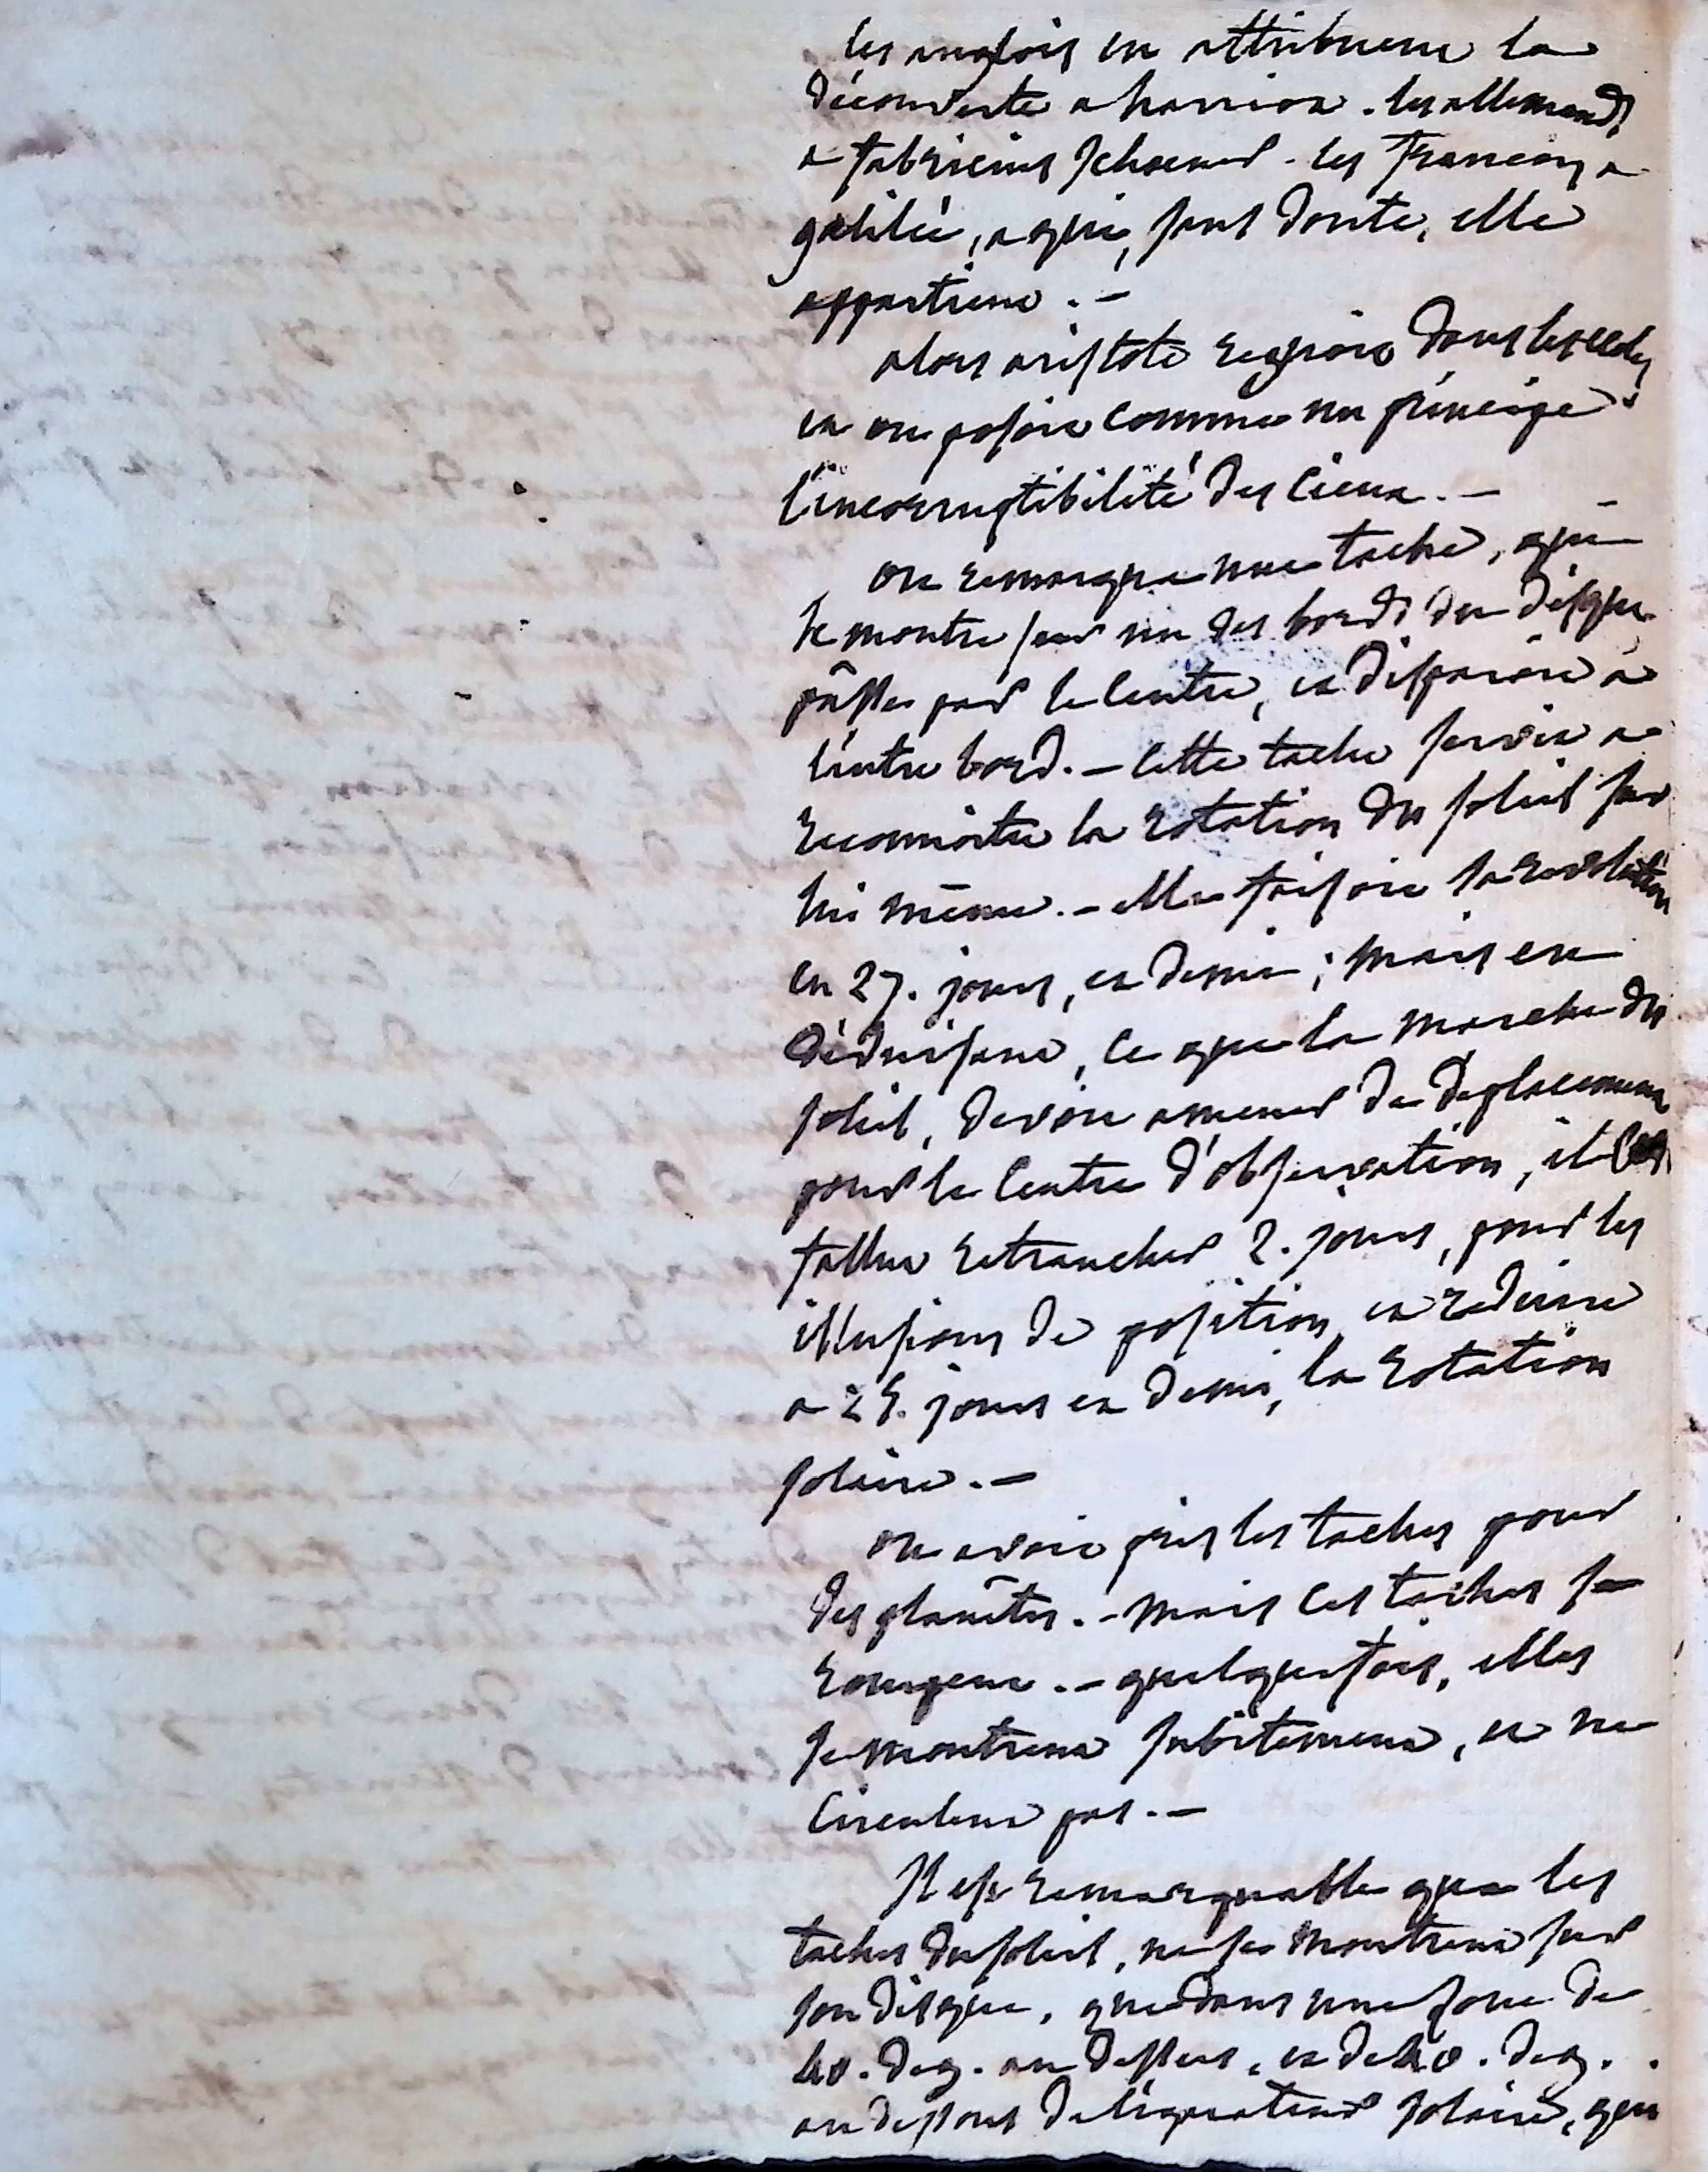 les anglois en attribuent la
découverte a harriot. les allemands
a fabricius scheiner - les francois a
galilée, a qui, sans doute, elle
appartient. -
alors aristote regnoit dans les ecoles
et on posoit comme un principe
l'incorruptibilité des cieux. -
on remarqua une tache, qui
se montre sur un des bords du disque
pâsse par le centre, et disparoit a
l'autre bord. - cette tache servit a
reconnoitre la rotation du soleil sur
lui même. - elle faisoit sa revolution
en 27. jours, et demie; mais en
déduisant, ce que la marche du
soleil, devoit amener de deplacement
pour le centre d'observation, il
fallut retrancher 2. jours, pour les
illusions de position et reduire
a 25. jours et demi, la rotation
solaire. -
on avoit pris les taches pour
des planêtes. - mais ces taches se
rompent. - quelquefois, elles
se montrent subitement, et ne
circulent pas. -
Il est remarquable que les
taches du soleil, ne se montrent sur
son disque, que dans une zone de
40. deg. au dessus, et de 40. deg.
au dessous de l'equateur solaire, que